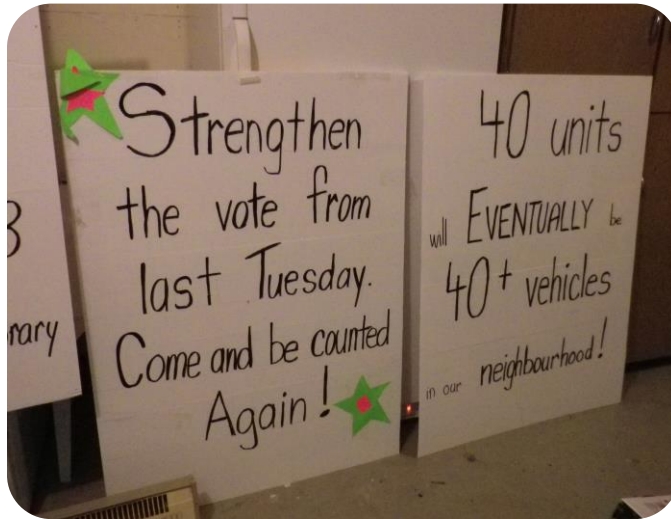 3
Strengthen
the vote from
last Tuesday.
Come and be counted
Again!
40 units
will EVENTUALLY be
40+ vehicles
in our neighbourhood!